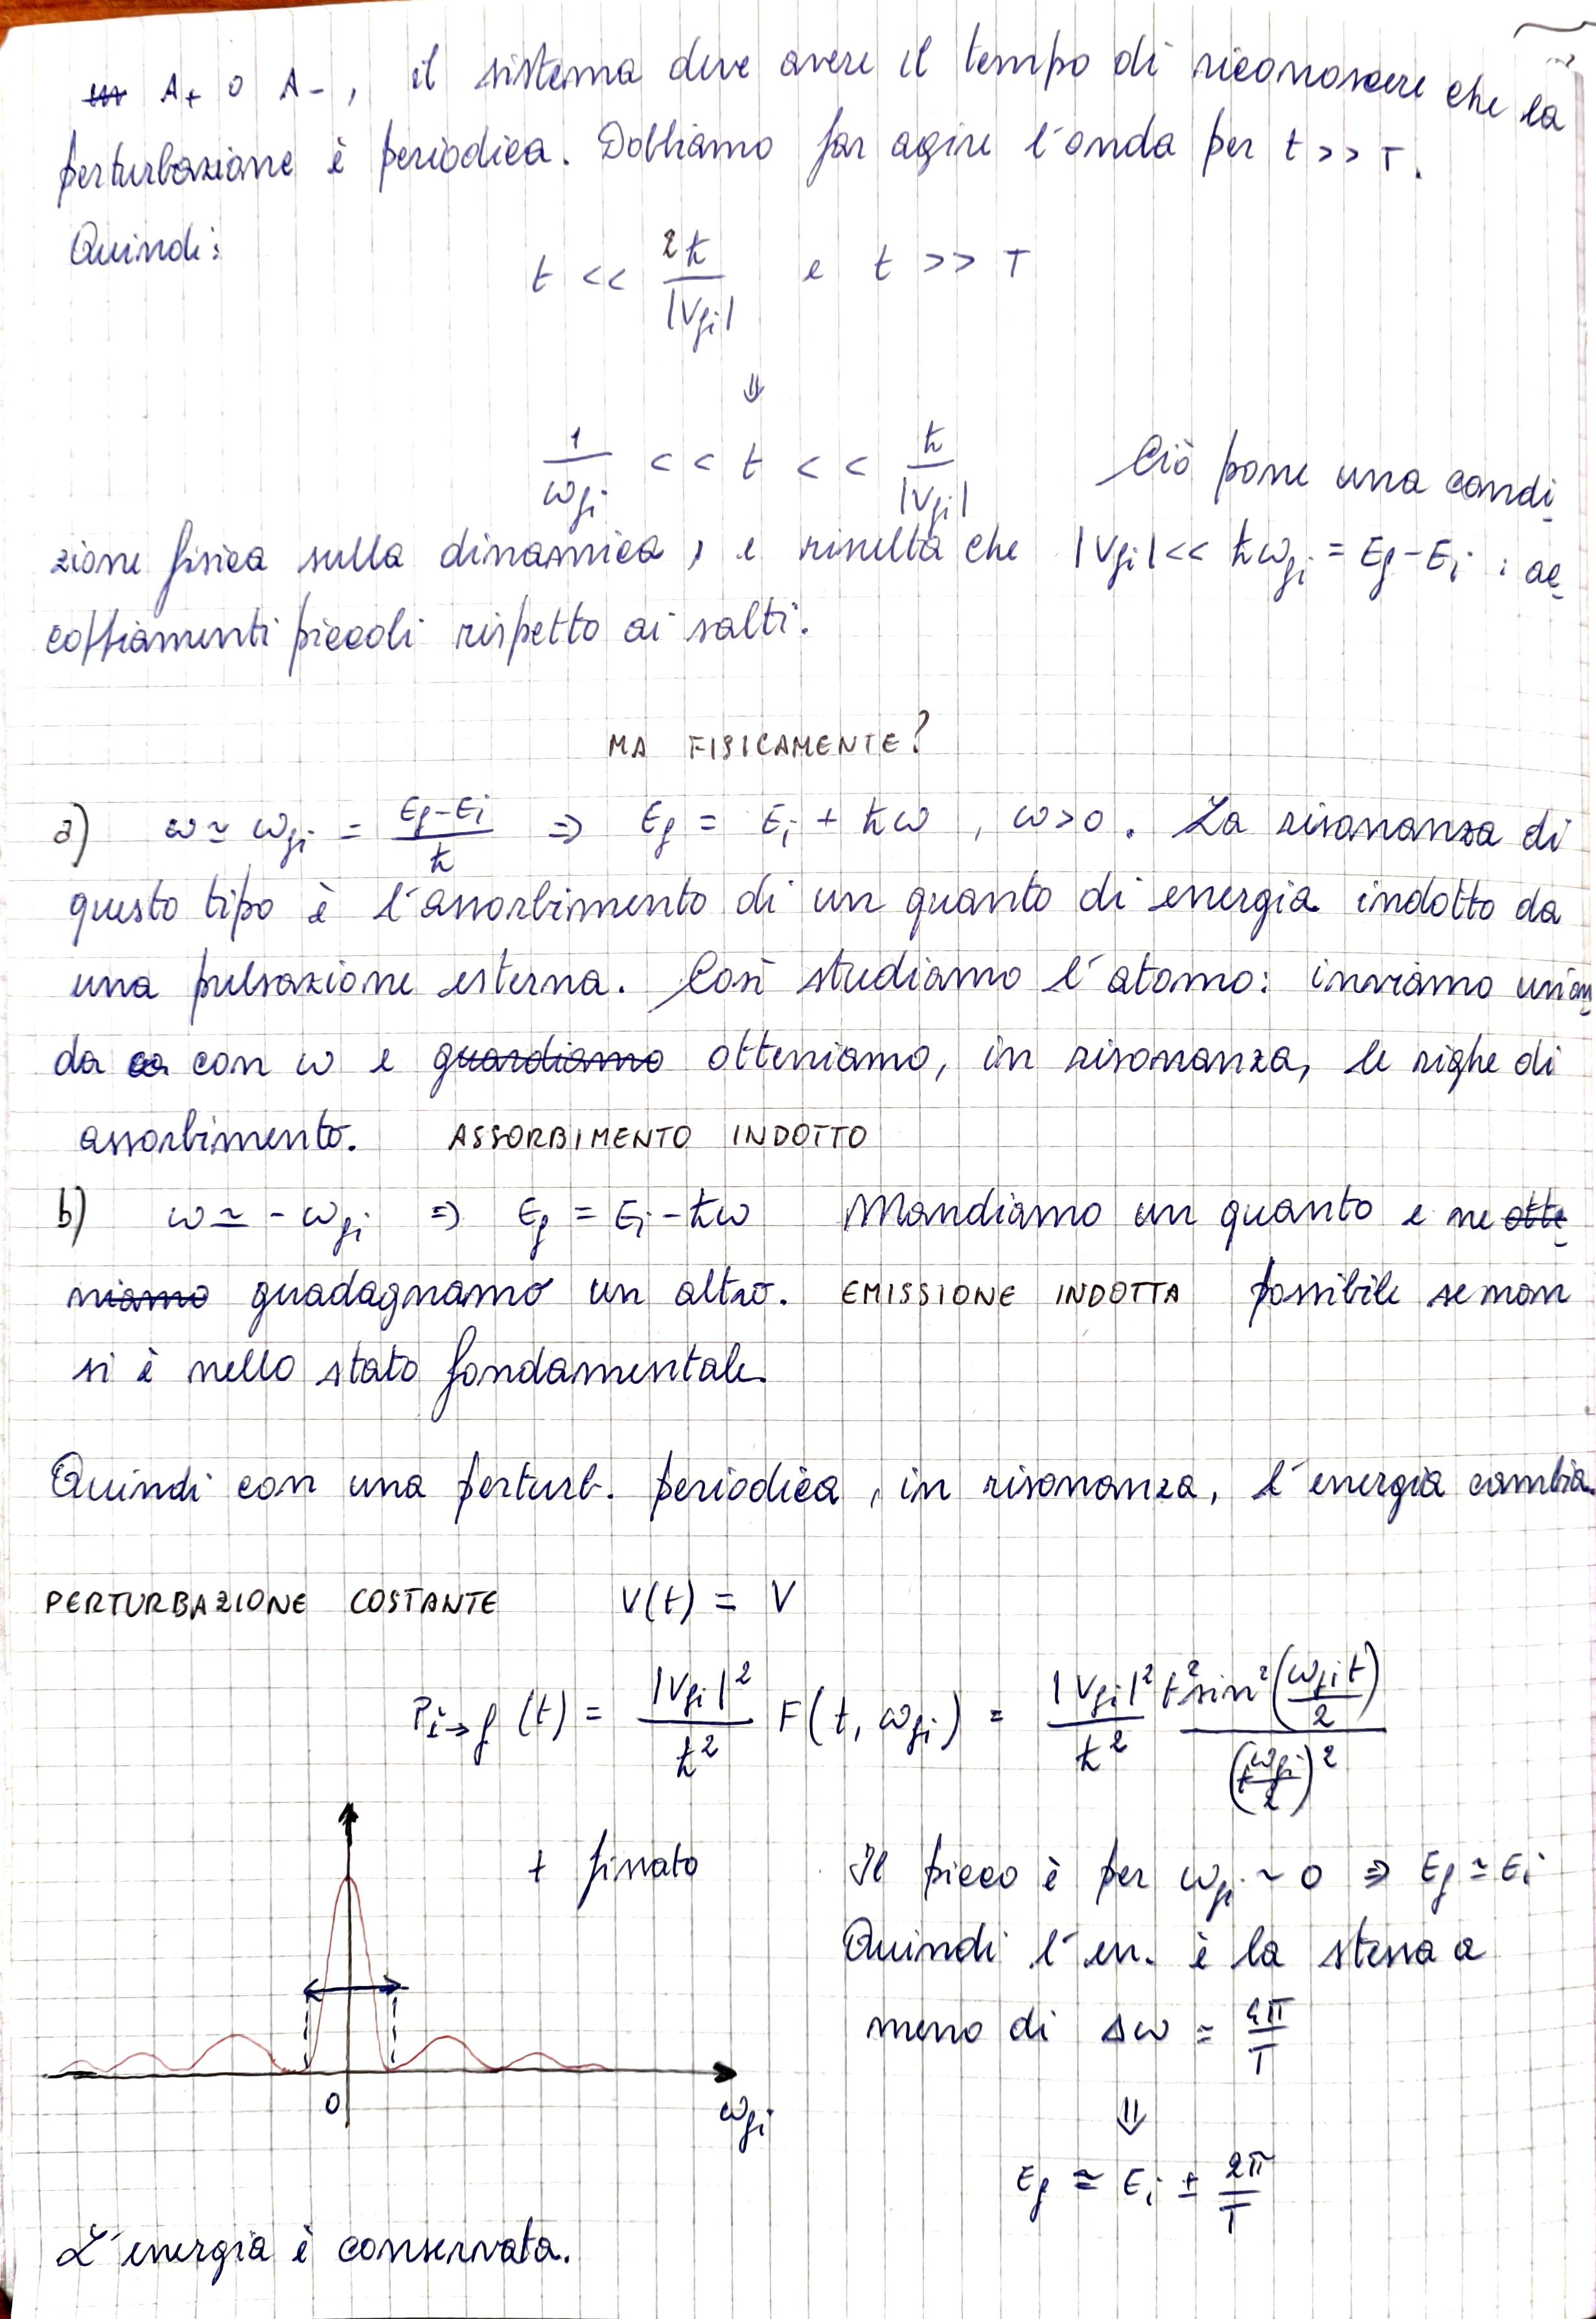 A₊ o A₋, il sistema deve avere il tempo di riconoscere che la
perturbazione è periodica. Dobbiamo far agire l'onda per t >> T.
Quindi:
t << 2ħ/|V_fi| e t >> T
⇓
1/ω_fi << t << ħ/|V_fi| Ciò pone una condi
zione fisica sulla dinamica, e risulta che |V_fi| << ħω_fi = E_f - E_i : ac
coppiamenti piccoli rispetto ai salti.
MA FISICAMENTE?
a) ω ≃ ω_fi = (E_f - E_i)/ħ ⇒ E_f = E_i + ħω, ω>0. La risonanza di
questo tipo è l'assorbimento di un quanto di energia indotto da
una pulsazione esterna. Così studiamo l'atomo: inviamo un'on
da con ω e guardiamo otteniamo, in risonanza, le righe di
assorbimento. ASSORBIMENTO INDOTTO
b) ω ≃ -ω_fi ⇒ E_f = E_i - ħω Mandiamo un quanto e ne otte
niamo guadagnamo un altro. EMISSIONE INDOTTA possibile se non
si è nello stato fondamentale.
Quindi con una perturb. periodica, in risonanza, l'energia cambia.
PERTURBAZIONE COSTANTE V(t) = V
P_i→f (t) = |V_fi|²/ħ² F(t, ω_fi) = |V_fi|²/ħ² t² sin²(ω_fi t/2)/(t ω_fi/2)²
t fissato
Il picco è per ω_fi ~ 0 ⇒ E_f ≃ E_i
Quindi l'en. è la stessa a
meno di Δω = 4π/T
⇓
E_f ≃ E_i ± 2π/T
0
ω_fi
L'energia è conservata.